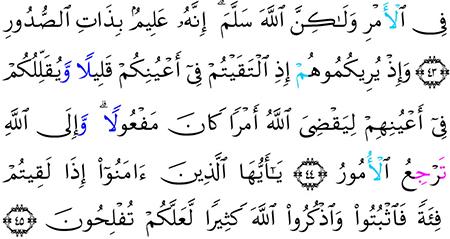 فِي ٱلۡأَمۡرِ وَلَٰكِنَّ ٱللَّهَ سَلَّمَۚ إِنَّهُۥ عَلِيمُۢ بِذَاتِ ٱلصُّدُورِ
٤٣ وَإِذۡ يُرِيكُمُوهُمۡ إِذِ ٱلۡتَقَيۡتُمۡ فِيٓ أَعۡيُنِكُمۡ قَلِيلٗا وَيُقَلِّلُكُمۡ
فِيٓ أَعۡيُنِهِمۡ لِيَقۡضِيَ ٱللَّهُ أَمۡرٗا كَانَ مَفۡعُولٗاۗ وَإِلَى ٱللَّهِ
تُرۡجَعُ ٱلۡأُمُورُ ٤٤ يَٰٓأَيُّهَا ٱلَّذِينَ ءَامَنُوٓاْ إِذَا لَقِيتُمۡ
فِئَةٗ فَٱثۡبُتُواْ وَٱذۡكُرُواْ ٱللَّهَ كَثِيرٗا لَّعَلَّكُمۡ تُفۡلِحُونَ ٤٥